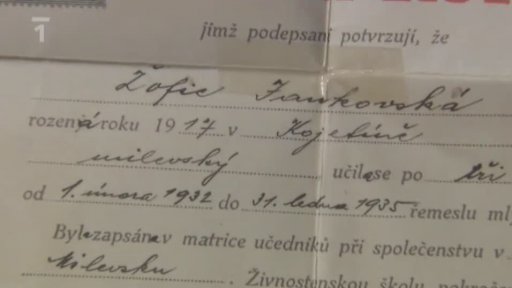 1
jímž podepsaní potvrzují, že
Žofie Jankovská
rozená roku 1917 v Kojetíně
milevský učila se po tři
od 1. února 1932 do 31. ledna 1935 řemeslu ml
Byla zapsána v matrice učedníků při společenstvu v
Milevsku. Živnostenskou školu pokračo